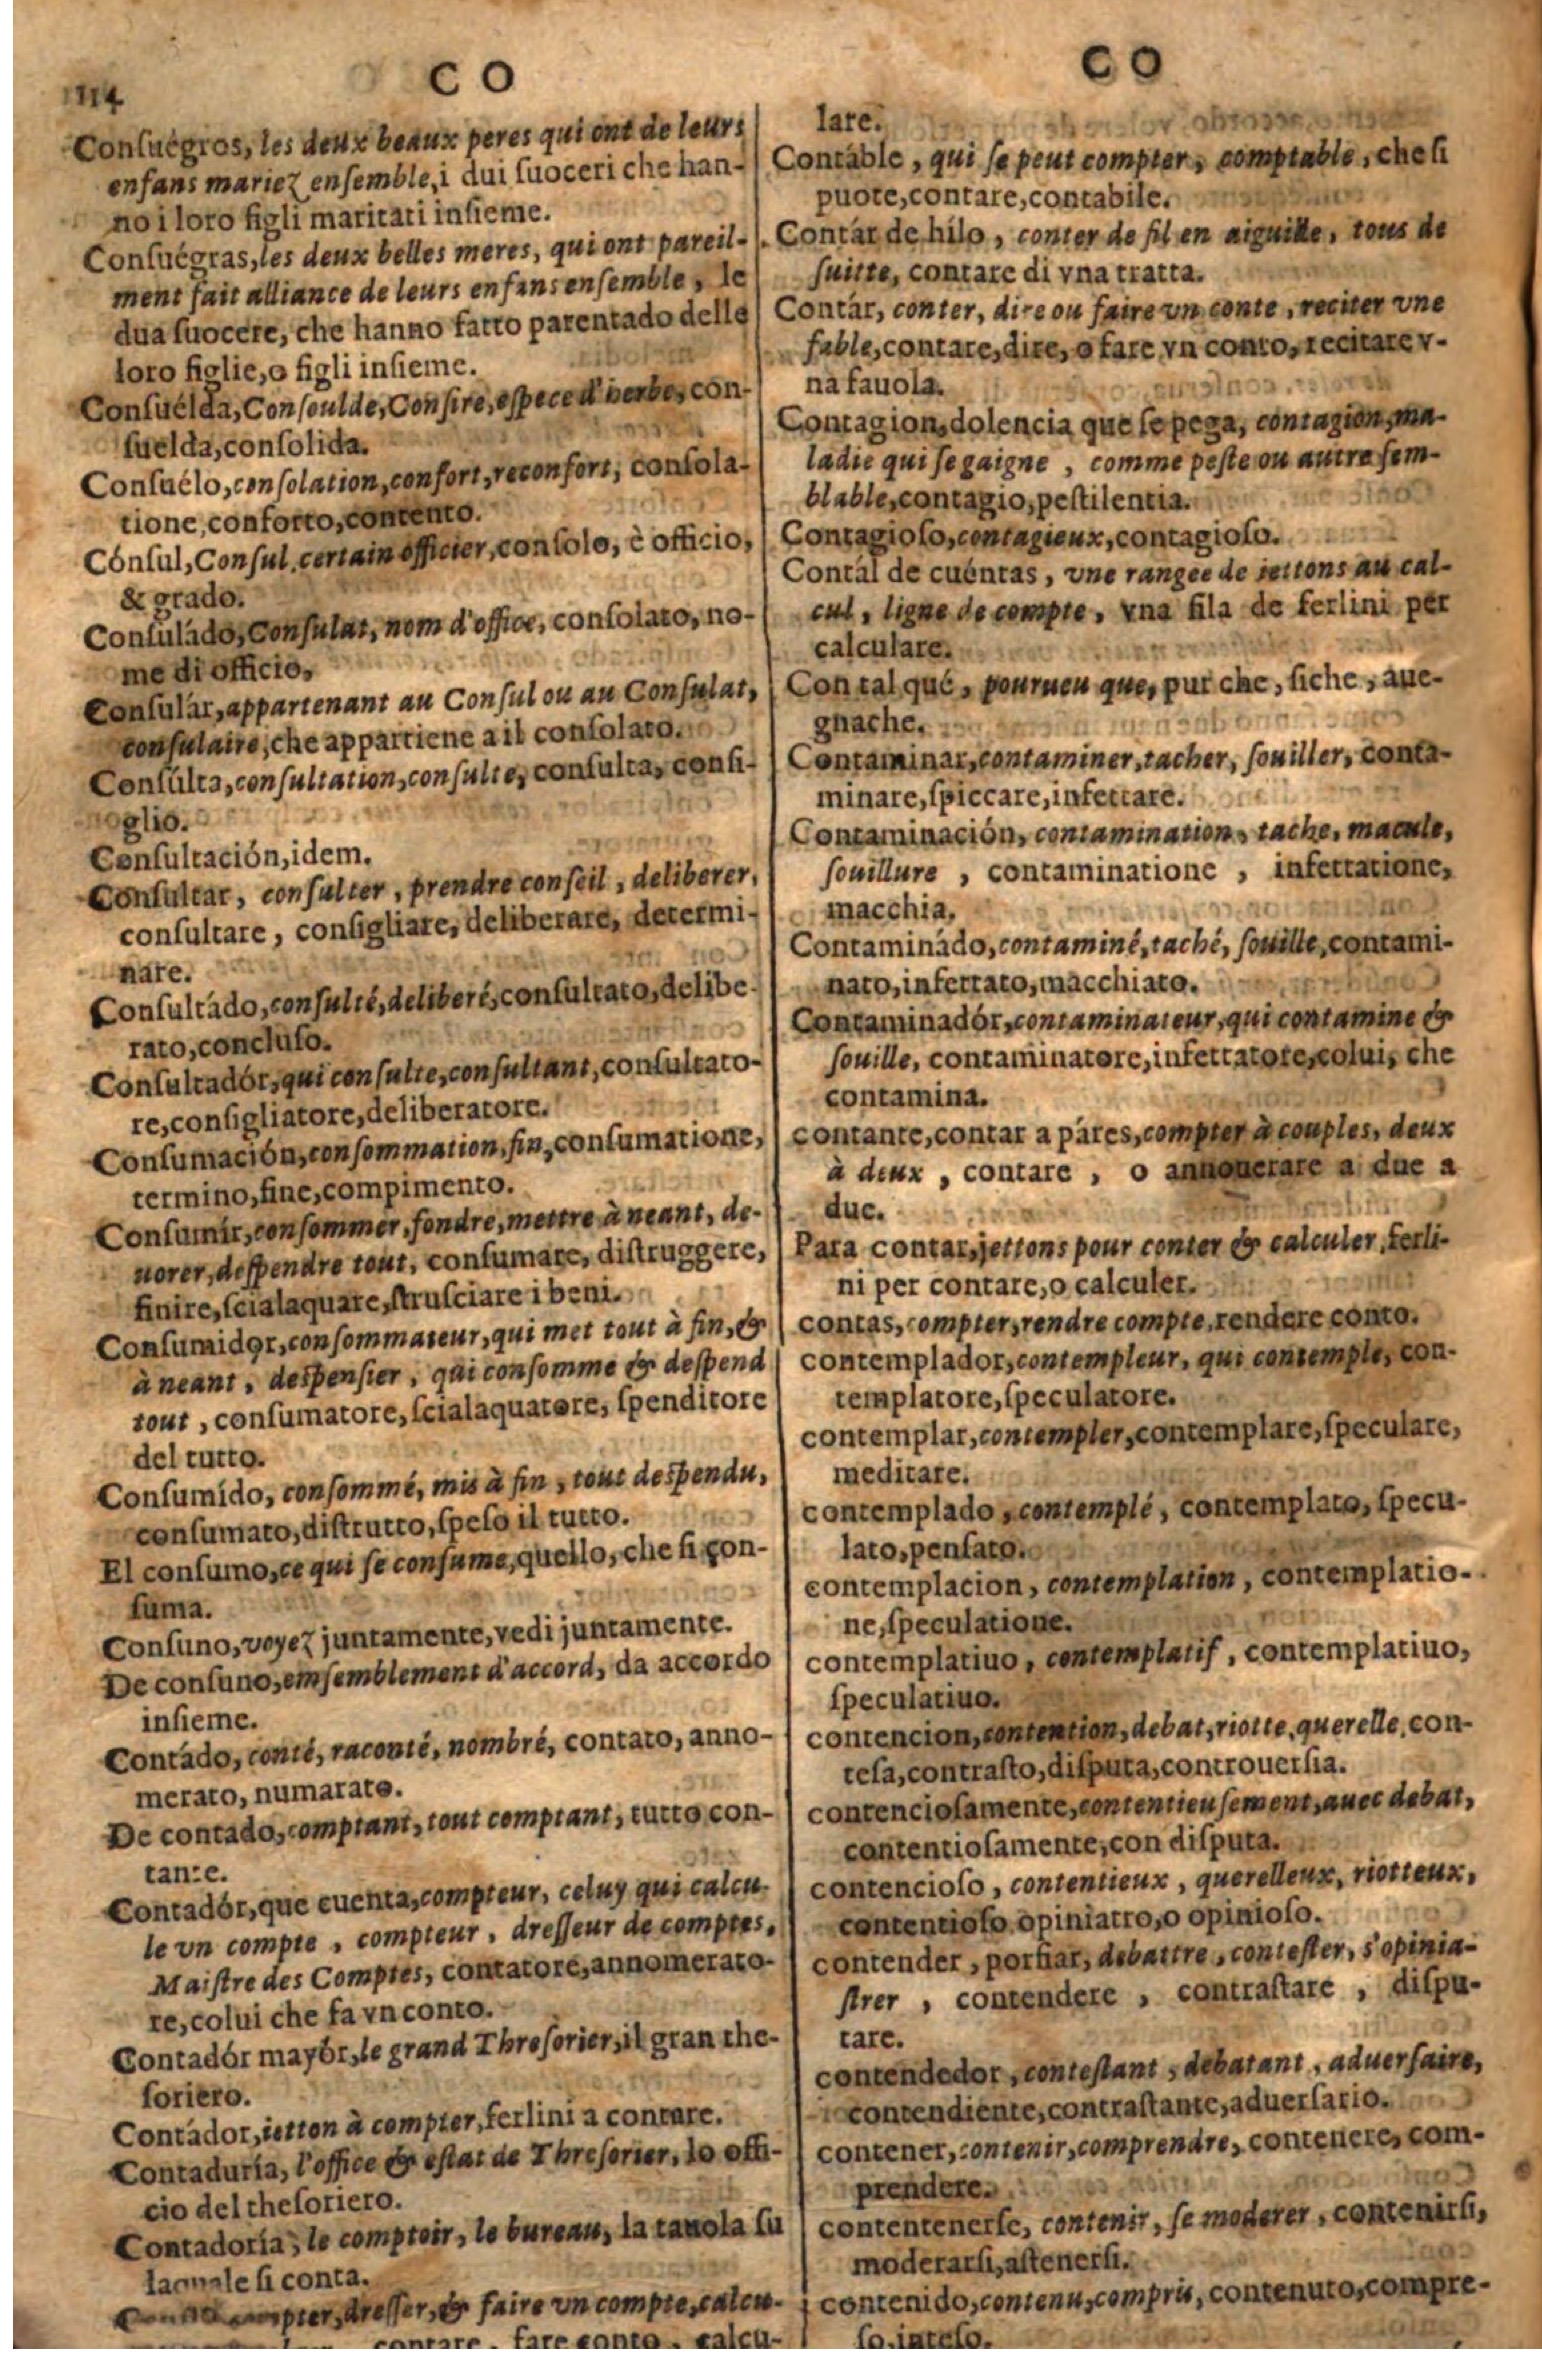 114
C O
Conſuégros, les deux beaux peres qui ont de leurs
enfans mariez enſemble, i dui ſuoceri che han-
no i loro figli maritati inſieme.
Conſuégras, les deux belles meres, qui ont pareil-
ment fait alliance de leurs enfans enſemble, le
dua ſuocere, che hanno fatto parentado delle
loro figlie, o figli inſieme.
Conſuélda, Conſoulde, Conſire, eſpece d'herbe, con-
ſuelda, conſolida.
Conſuélo, conſolation, confort, reconfort, conſola-
tione, conforto, contento.
Cónſul, Conſul, certain officier, conſolo, è officio,
& grado.
Conſuládo, Conſulat, nom d'office, conſolato, no-
me di officio,
Conſulár, appartenant au Conſul ou au Conſulat,
conſulaire, che appartiene a il conſolato.
Conſúlta, conſultation, conſulte, conſulta, conſi-
glio.
Conſultación, idem.
Conſultar, conſulter, prendre conſeil, deliberer,
conſultare, conſigliare, deliberare, determi-
nare.
Conſultádo, conſulté, deliberé, conſultato, delibe-
rato, concluſo.
Conſultadór, qui conſulte, conſultant, conſultato-
re, conſigliatore, deliberatore.
Conſumación, conſommation, fin, conſumatione,
termino, fine, compimento.
Conſumír, conſommer, fondre, mettre à neant, de-
uorer, deſpendre tout, conſumare, diſtruggere,
finire, ſcialaquare, ſtruſciare i beni.
Conſumidor, conſommateur, qui met tout à fin, &
à neant, deſpenſier, qui conſomme & deſpend
tout, conſumatore, ſcialaquatore, ſpenditore
del tutto.
Conſumído, conſommé, mis à fin, tout deſpendu,
conſumato, diſtrutto, ſpeſo il tutto.
El conſumo, ce qui ſe conſume, quello, che ſi con-
ſuma.
Conſuno, voyez juntamente, vedi juntamente.
De conſuno, emſemblement d'accord, da accordo
inſieme.
Contádo, conté, raconté, nombré, contato, anno-
merato, numarato.
De contado, comptant, tout comptant, tutto con-
tante.
Contadór, que cuenta, compteur, celuy qui calcu-
le vn compte, compteur, dreſſeur de comptes,
Maiſtre des Comptes, contatore, annomerato-
re, colui che fa vn conto.
Contadór mayór, le grand Threſorier, il gran the-
ſoriero.
Contádor, ietton à compter, ferlini a contare.
Contaduría, l'office & eſtat de Threſorier, lo offi-
cio del theſoriero.
Contadoría, le comptoir, le bureau, la tauola ſu
laquale ſi conta.
compter, dreſſer, & faire vn compte, calcu-
contare, fare conto, calcu-
C O
lare.
Contáble, qui ſe peut compter, comptable, che ſi
puote, contare, contabile.
Contár de hilo, conter de fil en aiguille, tous de
ſuitte, contare di vna tratta.
Contár, conter, dire ou faire vn conte, reciter vne
fable, contare, dire, o fare vn conto, recitare v-
na fauola.
Contagion, dolencia que ſe pega, contagion, ma-
ladie qui ſe gaigne, comme peſte ou autre ſem-
blable, contagio, peſtilentia.
Contagioſo, contagieux, contagioſo.
Contál de cuéntas, vne rangee de iettons au cal-
cul, ligne de compte, vna fila de ferlini per
calculare.
Con tal qué, pourueu que, pur che, ſiche, aue-
gnache.
Contaminar, contaminer, tacher, ſouiller, conta-
minare, ſpiccare, infettare.
Contaminación, contamination, tache, macule,
ſouillure, contaminatione, infettatione,
macchia.
Contaminádo, contaminé, taché, ſouille, contami-
nato, infettato, macchiato.
Contaminadór, contaminateur, qui contamine &
ſouille, contaminatore, infettatore, colui, che
contamina.
contante, contar a páres, compter à couples, deux
à deux, contare, o annouerare a due a
due.
Para contar, jettons pour conter & calculer, ferli-
ni per contare, o calculer.
contas, compter, rendre compte, rendere conto.
contemplador, contempleur, qui contemple, con-
templatore, ſpeculatore.
contemplar, contempler, contemplare, ſpeculare,
meditare.
contemplado, contemplé, contemplato, ſpecu-
lato, penſato.
contemplacion, contemplation, contemplatio-
ne, ſpeculatione.
contemplatiuo, contemplatif, contemplatiuo,
ſpeculatiuo.
contencion, contention, debat, riotte, querelle, con-
teſa, contraſto, diſputa, controuerſia.
contencioſamente, contentieuſement, auec debat,
contentioſamente, con diſputa.
contencioſo, contentieux, querelleux, riotteux,
contentioſo opiniatro, o opinioſo.
contender, porfiar, debattre, conteſter, s'opinia-
ſtrer, contendere, contraſtare, diſpu-
tare.
contendedor, conteſtant, debatant, aduerſaire,
contendiente, contraſtante, aduerſario.
contener, contenir, comprendre, contenere, com-
prendere.
contentenerſe, contenir, ſe moderer, contenirſi,
moderarſi, aſtenerſi.
contenido, contenu, compris, contenuto, compre-
ſo, inteſo.